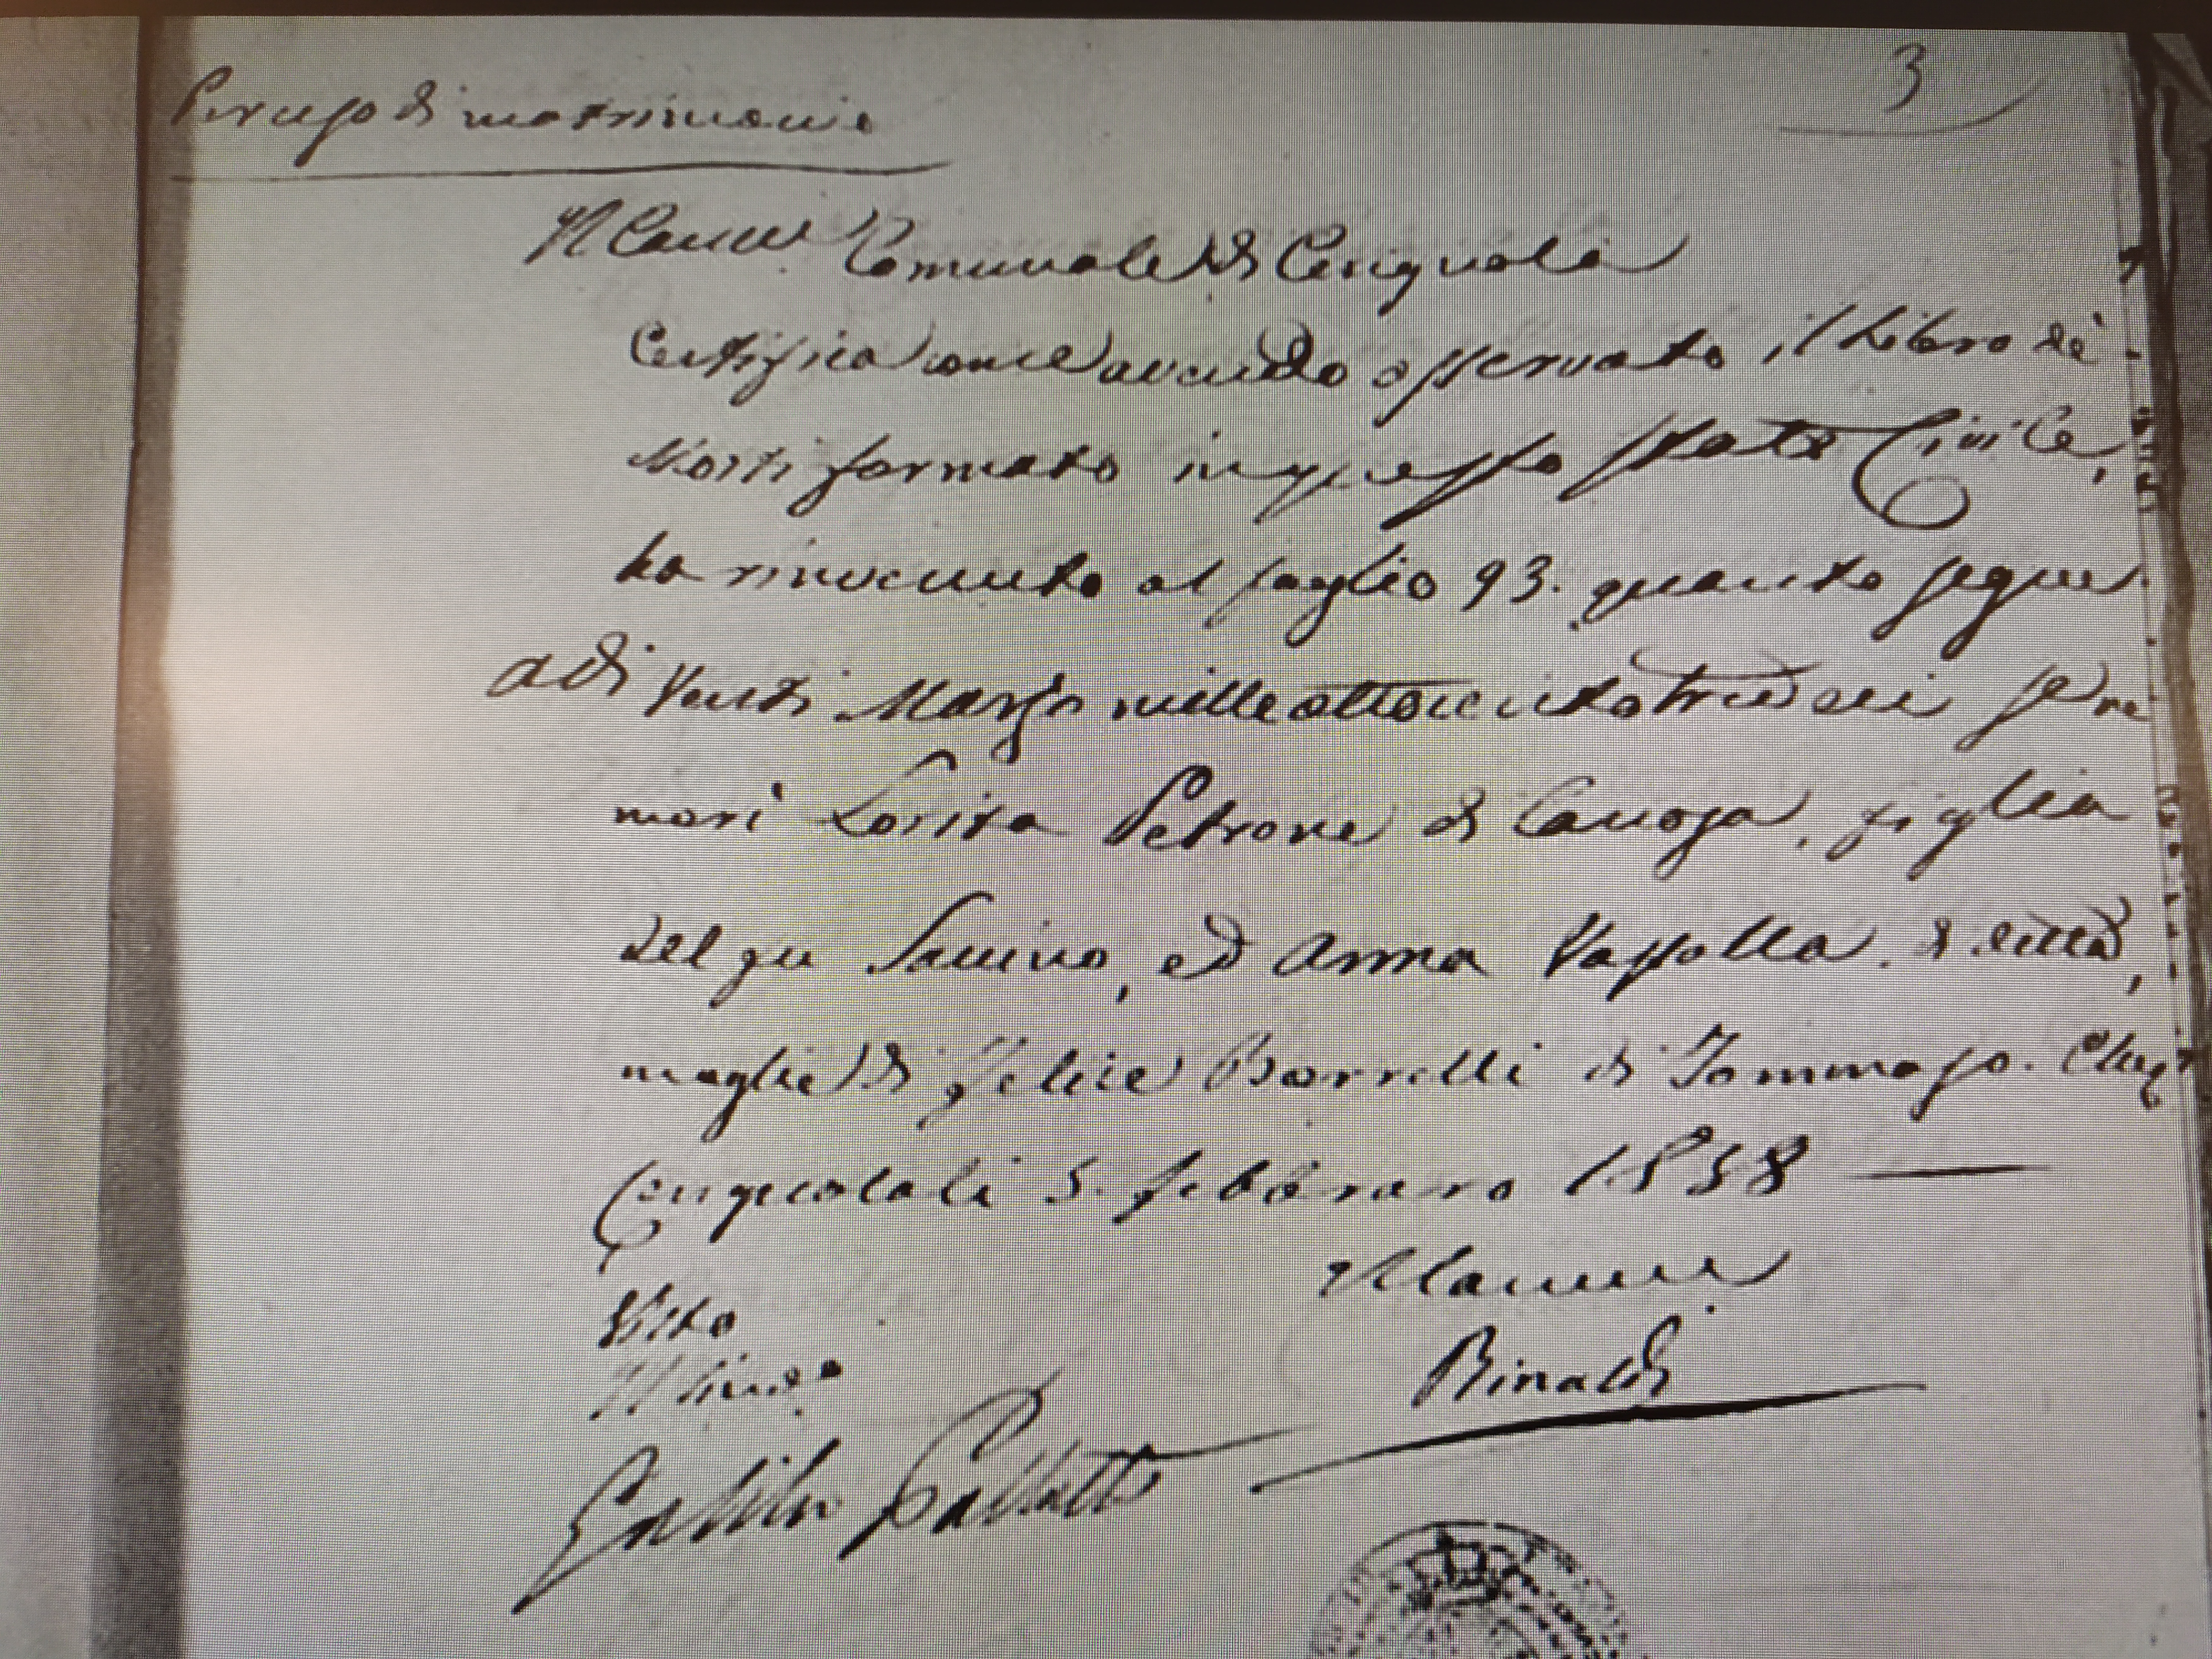 Per uso di matrimonio
3
Il Canc.re Comunale di Cerignola
Certifica come avendo osservato il Libro de'
Morti formato in questo stato Civile,
ha rinvenuto al foglio 93. quanto segue
a di Venti Marzo mille ottocento tredeci se ne
morì Lorita Petrone di Canosa, figlia
del qu Savino, ed Anna Vassolla. di città,
moglie di Felice Borrelli di Tommaso.
Cerignola li 5. febbraro 1838
Il Canc.re
Visto
Rinaldi
Il Sindaco